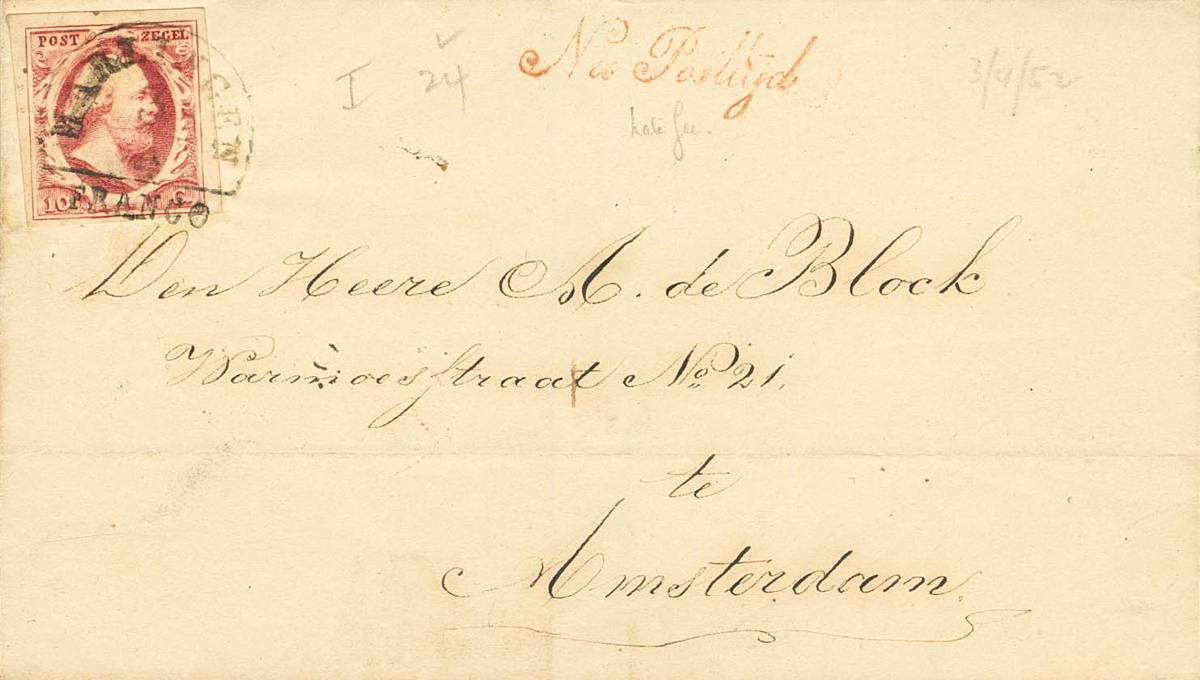 POST ZEGEL
HARLINGEN
10 C.
FRANCO
I 24
Na Posttijd
3/4/52
late fee.
Den Heere A. de Block
Warmoesstraat No. 21.
te
Amsterdam.